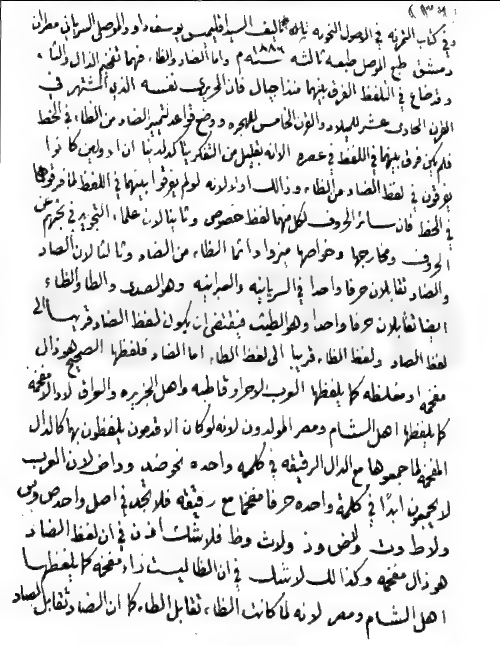 (٩٣٨)
وفي كتاب التمرنه في الاصول النحويه تاليف السيد اقليميس يوسف داود الموصلي السرياني مطران
دمشق طبع الموصل طبعه ثالثه سنه ١٨٨٦ م واما الضاد والظاء فهما تفخيم الدال والذال
وقد ضاع في التلفظ الفرق بينهما منذ اجيال فان الحريري نفسه الذي اشتهر في
القرن الحادي عشر للميلاد والقرن الخامس للهجره ووضع قواعد لتميز الضاد من الظاء في الخط
فلم يكن فرق بينهما في اللفظ في عصره الا انه بقليل من التفكر يتأكد لدينا ان الاولين كانوا
يفرقون في لفظ الضاد من الظاء وذالك اولا لانه لو لم يفرقوا بينهما في اللفظ لما فرقوها
في الخط فان سائر الحروف لكل منها لفظ خصوصي وثانيا لان علماء التجويد في بحثهم عن
الحروف ومخارجها وخواصها ميزوا دائما الظاء من الضاد وثالثا لان الصاد
والضاد تقابلان حرفا واحدا في السريانيه والعبرانيه وهو الصدى والطا والظاء
ايضا تقابلان حرفا واحدا وهو الطيث فيقتضى ان يكون لفظ الضاد قريبا الى
لفظ الصاد ولفظ الظاء قريبا الى لفظ الطاء اما الضاد فلفظها الصحيح هو ذال
مفخمه او مغلظه كما يلفظها العرب الاحرار قاطبه واهل الجزيره والعراق لا دال مفخمه
كما يلفظها اهل الشام ومصر المولدون لانه لو كان الاقدمون يلفظون بها كالدال
المفخمه لما جمعوها مع الدال الرقيقه في كلمه واحده نحو ضد وداض لان العرب
لا يجمعون ابدًا في كلمة واحده حرفا مفخما مع رقيقه فلا تجد في اصل واحد ص وس
ولا ط وت ولا ض وذ ولا ث وظ فلا شك اذن في ان لفظ الضاد
هو ذال مفخمه وكذالك لا شك في ان الظا ليست زاء مفخمه كما يلفظها
اهل الشام ومصر لانه لما كانت الظاء تقابل الطاء كما ان الضاد تقابل الصاد